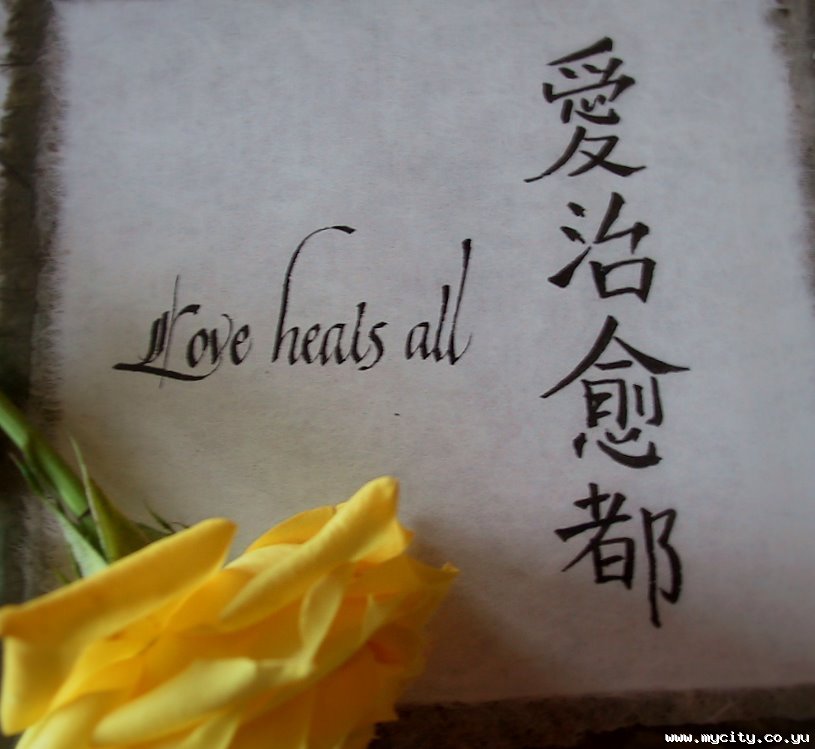 Love heals all
愛治愈都
www.mycity.co.yu